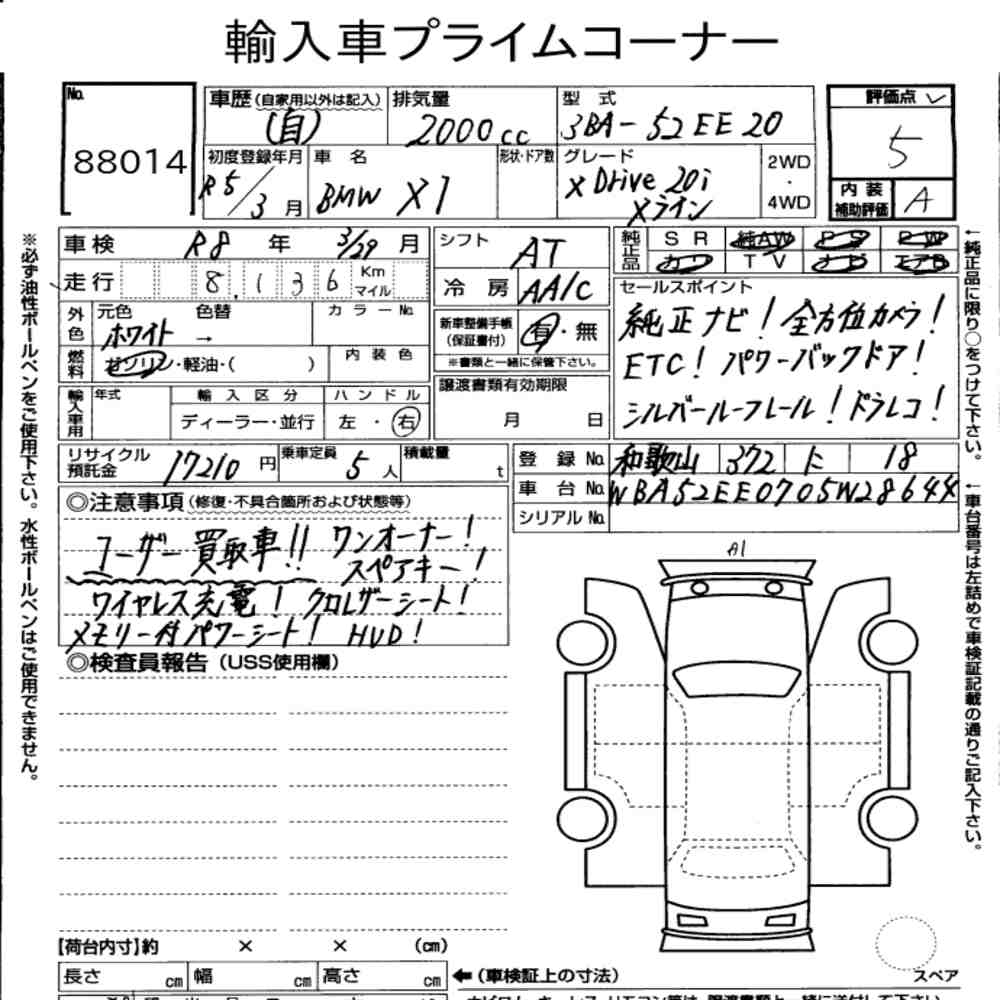 輸入車プライムコーナー
No.
88014
車歴(自家用以外は記入)
(自)
排気量
2000cc
型式
3BA-52EE20
評価点
5
初度登録年月
R5/3月
車名
BMW X1
形状・ドア数
グレード
xDrive 20i
xライン
2WD
・
4WD
内装
補助評価
A
車検 R8年 3/29月
走行 8,136 Km
マイル
シフト AT
冷房 AA/C
純正品
SR 純AW PS PW
カワ TV ナビ エアB
外色
元色 色替
カラーNo.
ホワイト →
燃料
ガソリン・軽油・( )
内装色
新車整備手帳
(保証書付)
有・無
※書類と一緒に保管下さい。
セールスポイント
純正ナビ! 全方位カメラ!
ETC! パワーバックドア!
シルバールーフレール! ドラレコ!
輸入車用
年式
輸入区分
ハンドル
ディーラー・並行
左・右
譲渡書類有効期限
月 日
リサイクル
預託金
17210円
乗車定員
5人
積載量
t
登録No. 和歌山 372 に 18
車台No. WBA52EE0705W28644
シリアルNo.
◎注意事項(修復・不具合箇所および状態等)
ユーザー買取車!! ワンオーナー!
スペアキー!
ワイヤレス充電! クロレザーシート!
メモリー付パワーシート! HUD!
◎検査員報告(USS使用欄)
A1
【荷台内寸】約 × × (cm)
長さ cm 幅 cm 高さ cm
←(車検証上の寸法)
スペア
※必ず油性ボールペンをご使用下さい。水性ボールペンはご使用できません。
←純正品に限り○をつけて下さい。
←車台番号は左詰めで車検証記載の通りご記入下さい。